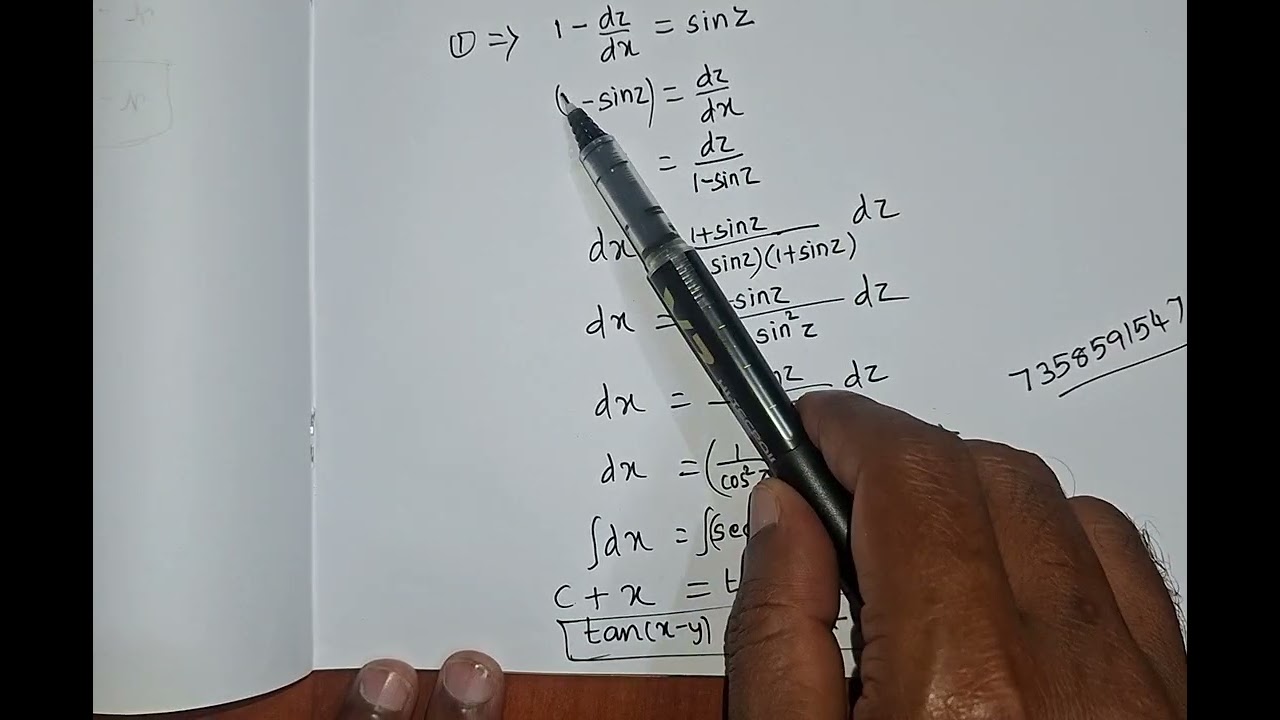 ① ⇒ 1 - dz/dx = sinz
- sinz) = dz/dx
= dz/1-sinz
dx 1+sinz/sinz)(1+sinz) dz
dx = sinz/sin²z dz
dx = dz
dx = (1/cos²z
∫dx = ∫(sec
c + x = t
tan(x-y)
7358591547
HITECPOINT